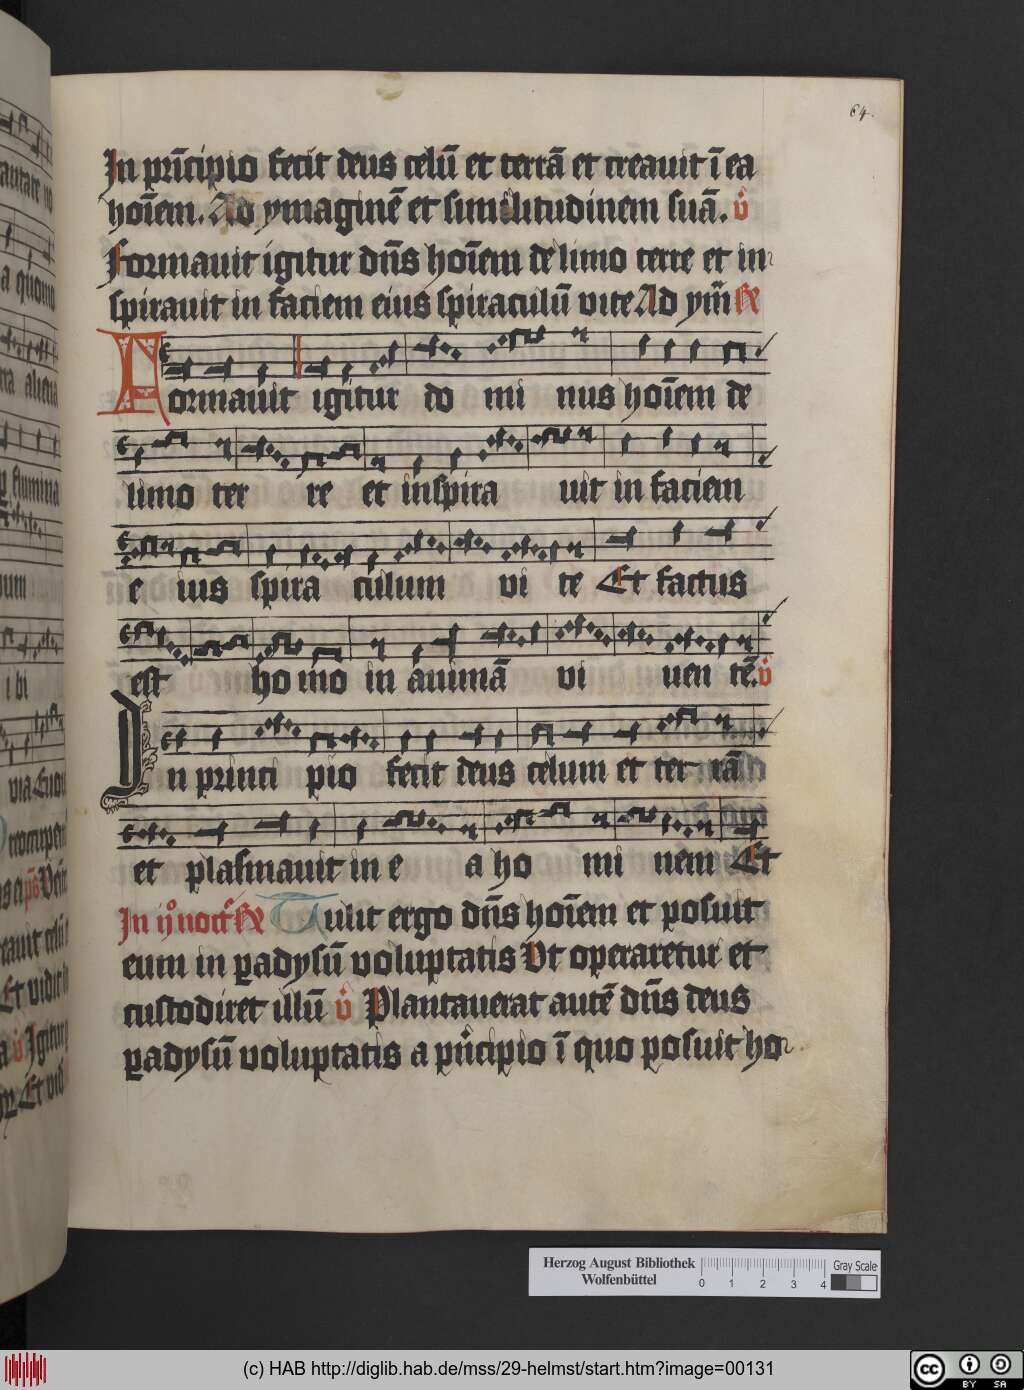 64.
In prīcipio fecit deus celū et terrā et creauit ī ea
hoīem. Ad ymaginē et similitudinem suā. v̊
Formauit igitur dn̄s hoīem de limo terre et in
spirauit in faciem eius spiraculū vite Ad ym̄ R̸
Formauit igitur do mi nus hoīem de
limo ter re et inspira uit in faciem
e ius spira culum vi te Et factus
est ho mo in animā vi uen tē. v̊
In princi pio fecit deus celum et ter rā
et plasmauit in e a ho mi nem Et
In ij noct R̸ Tulit ergo dn̄s hoīem et posuit
eum in padysū voluptatis Vt operaretur et
custodiret illū v̊ Plantauerat autē dn̄s deus
padysū voluptatis a pn̄cipio ī quo posuit ho
Herzog August Bibliothek
Wolfenbüttel
0 1 2 3 4
Gray Scale
(c) HAB http://diglib.hab.de/mss/29-helmst/start.htm?image=00131
cc BY SA